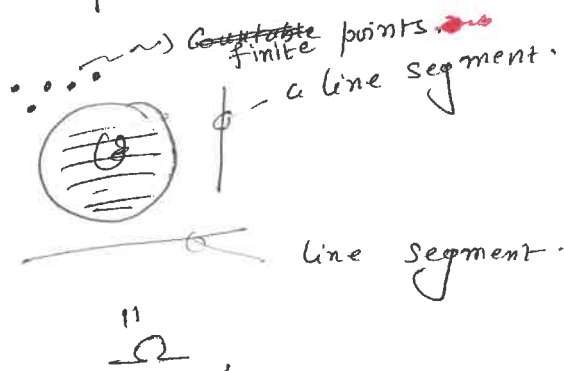 finite points.
a line segment.
line segment.
"
Ω